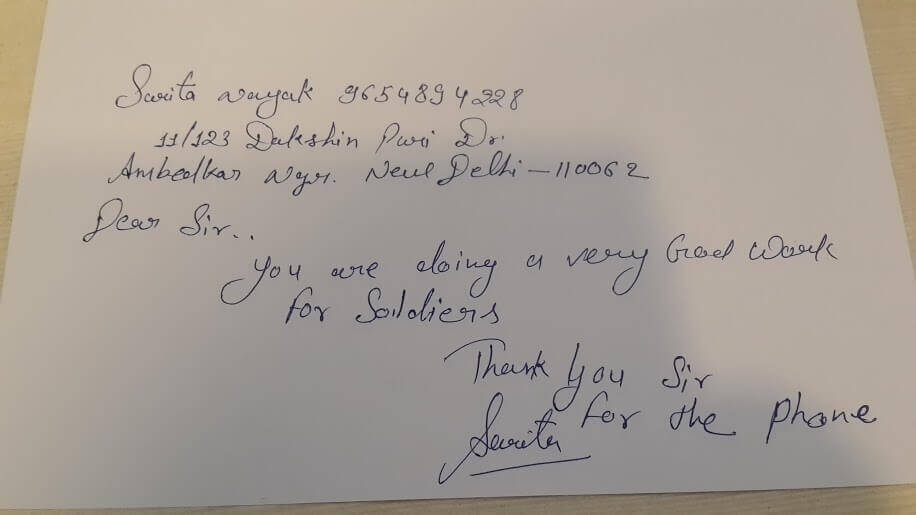 Sarita Nayak 9654894228
11/123 Dakshin Puri Dr.
Ambedkar Ngr. New Delhi - 110062
Dear Sir..
You are doing a very Good Work
for Soildiers
Thank You Sir
for the phone
Sarita